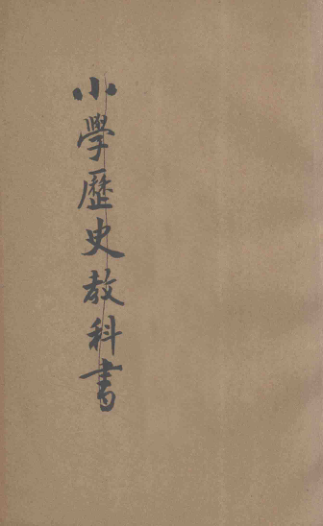 小學歷史教科書